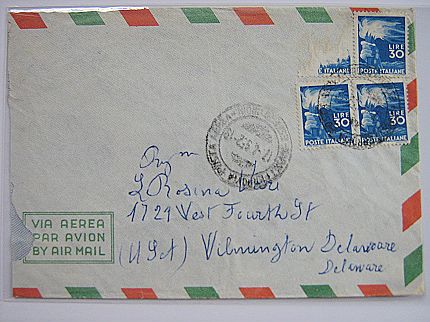 LIRE
30
POSTE ITALIANE
LIRE
30
POSTE ITALIANE
LIRE
30
POSTE ITALIANE
E ITALIANE
L Rosina
1729 Vest Fourth St
(USA) Vilmington Delaware
Delaware
VIA AEREA
PAR AVION
BY AIR MAIL